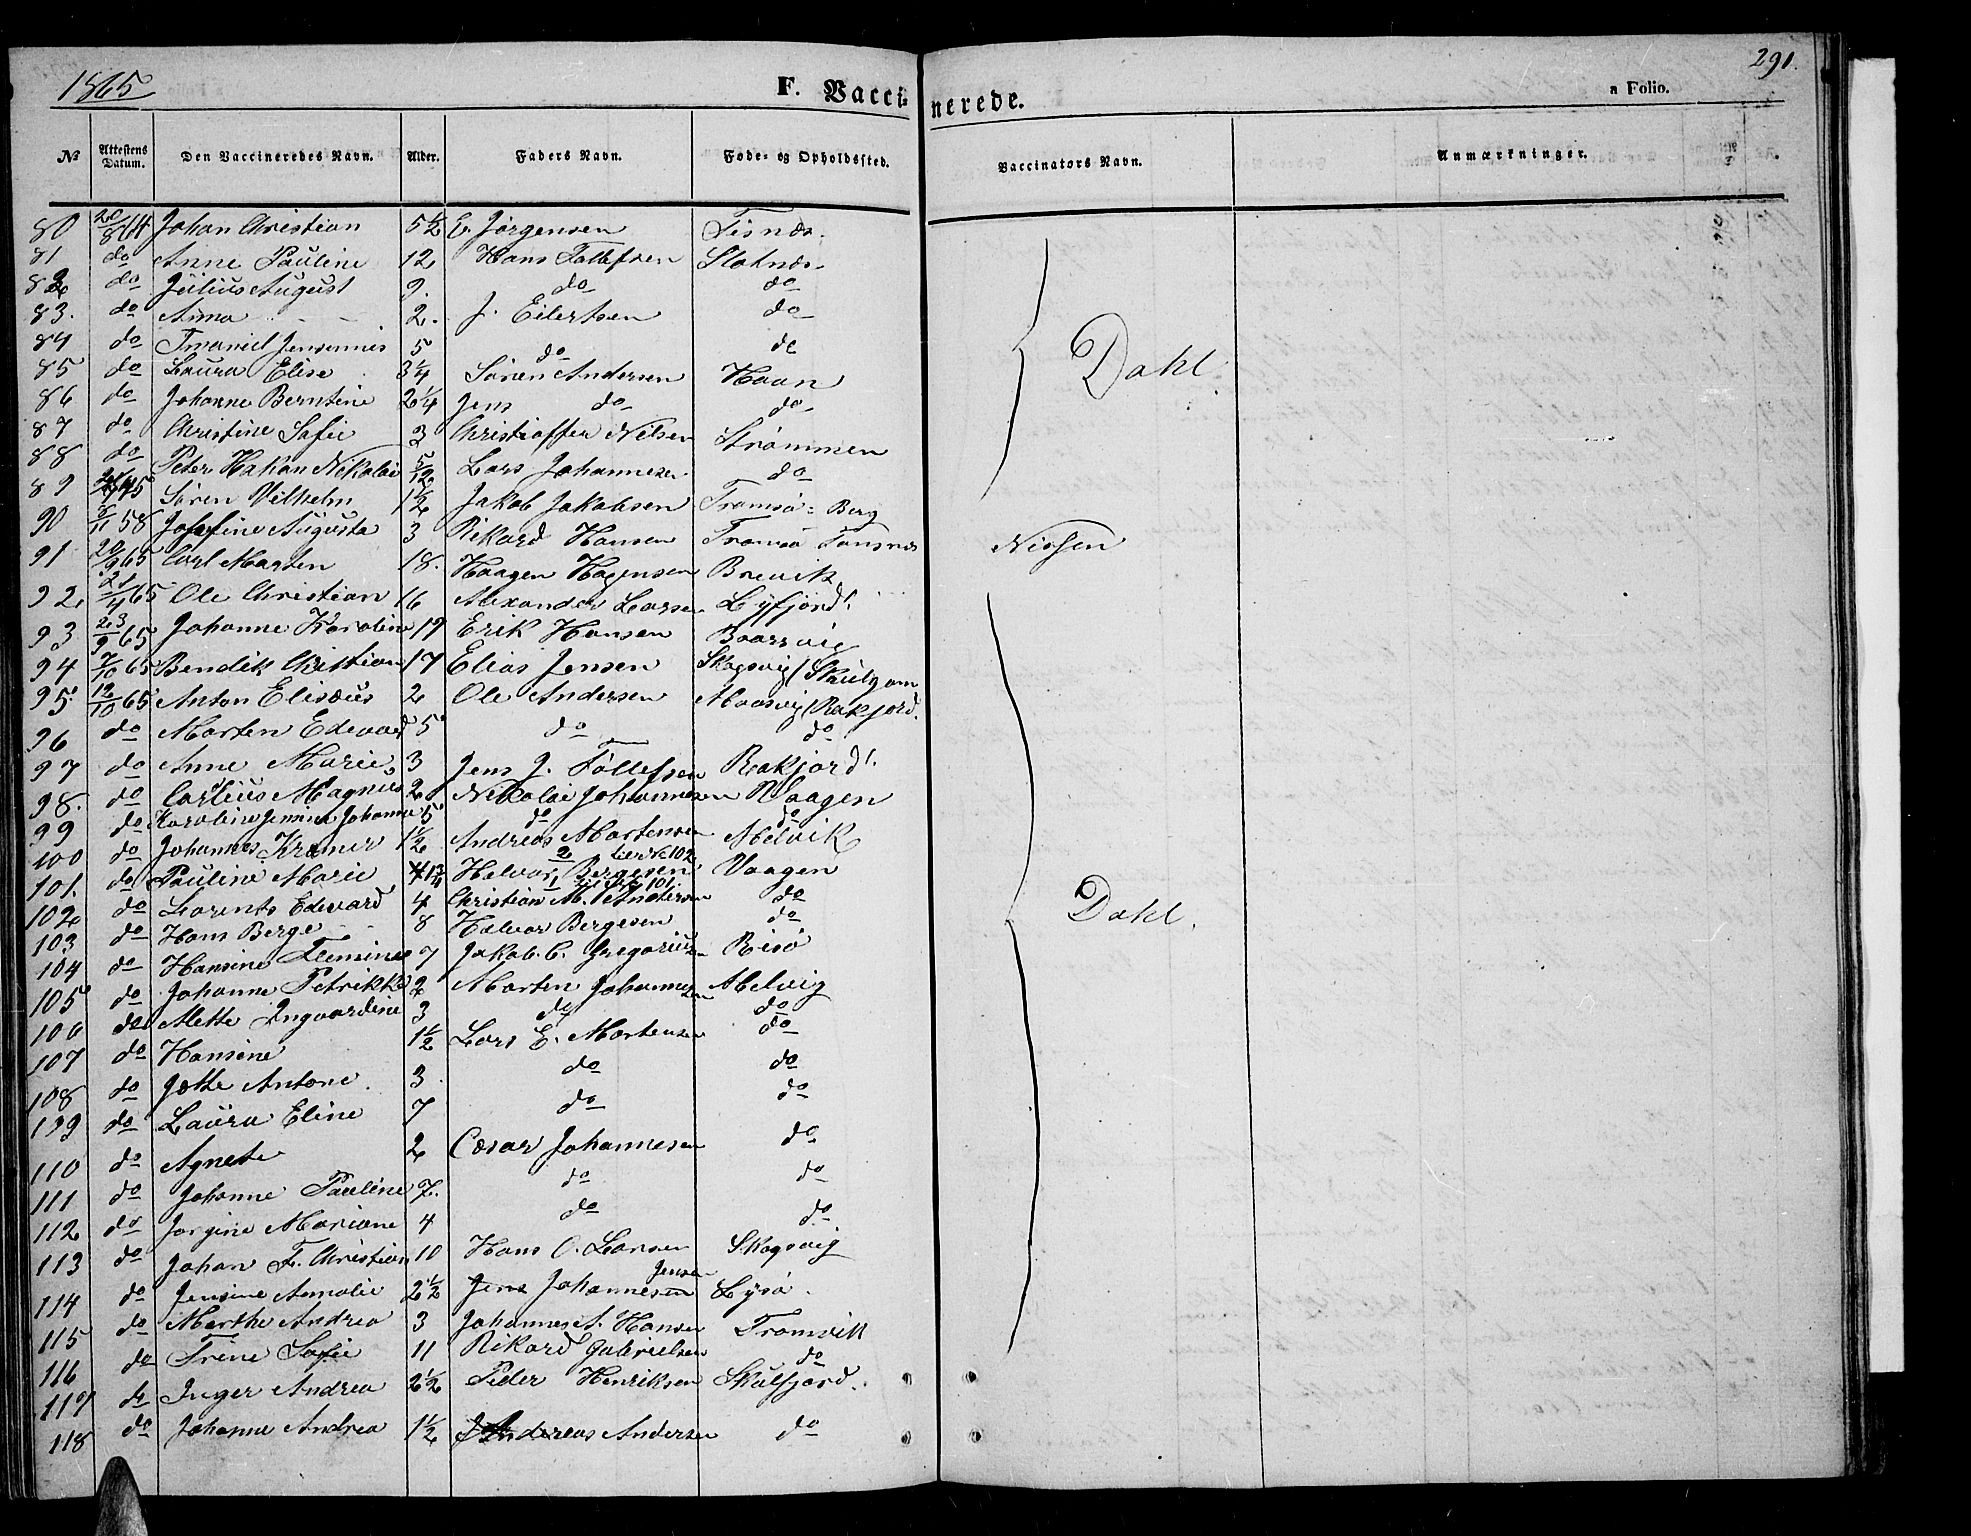 1865
F. Vaccinerede.
a Folio.
291.
№ Attestens Datum. Den Vaccineredes Navn. Alder. Faders Navn. Føde- og Opholdssted. Vaccinators Navn. Anmærkninger.
80 20/8 64 Johan Christian 5½ E. Jørgensen Tisnæs.
81 do Anne Pauline 12 Hans Tollefsen Slotnæs.
82 do Julius August 9. do do
83. do Anna 2. J. Eilertsen do
84 do 5 do do
85 do Laura Elise 3¼ Søren Andersen Haan
86 do Johanne Berntine 2¼ Jens do do
87 do Christine Sofie 3 Christoffer Nilsen Strømmen
88 do Peter Hakon Nikolai 5/12 Lars Johannesen do
Dahl
89 Søren Vilhelm 1½ Jakob Jakobsen Tromsø = Berg
90 58 Josefine Augusta 3 Rikard Hansen Tromsø Tonsnæs
Nissen
91 20/9 65 Carl Marten 18. Haagen Hagensen Brevik
92. 21/4 65 Ole Christian 16 Alexander Larsen Lyfjord
93 23/9 65 Johanne Karoline 19 Erik Hansen
94 7/10 65 Bendik Christian 17 Elias Jensen Skogsvig
95 12/10 65 Anton Elisæus 2 Ole Andersen Maasvig/Rekfjord.
96 do Morten Edevard 5 do do
97 do Anne Marie 3 Jens J. Tollefsen Rakfjord
98. do Carlius Magnus 2 Nikolai Johannesen Vaagen
99 do Karoline Jensine Johanna 5 do do
100 do Johannes Kræmer 1½ Andreas Mortensen Melvik
2 til № 102
101. do Pauline Marie Helvor Bergesen Vaagen
1 til № 101
102 do Lorents Edevard 4 Christian M. Andersen do
103 do Hans Berge 8 Halvor Bergesen do
104 do Hansine Flemine 7 Jakob C. Gregoriusen Risø
105 do Johanne Petrikke 2 Morten Johannesen Melvig
106 do Mette Ingvardine 3 do do
107 do Hansine 1½ Lars E. Mortensen do
108 do Jette Antone 3 do do
109 do Laura Eline 7 do do
110 do Agnete 2 Cæsar Johannesen do
111 do Johanne Pauline 7. do do
112 do Jorgine Mariane 4 do do
113 do Johan F. Christian 10 Hans O. Larsen Skogsvig
Jensen
114 do Jensine Amalie 2½ Jens Johannesen Lysø
115 do Marthe Andrea 3 Johannes A. Hansen Tromvik
116 do Trine Sofie 11 Rikard Gabrielsen do
117 do Inger Andrea 2½ Peder Henriksen Skulfjord.
118 do Johanne Andrea 1½ Andreas Andersen do
Dahl.